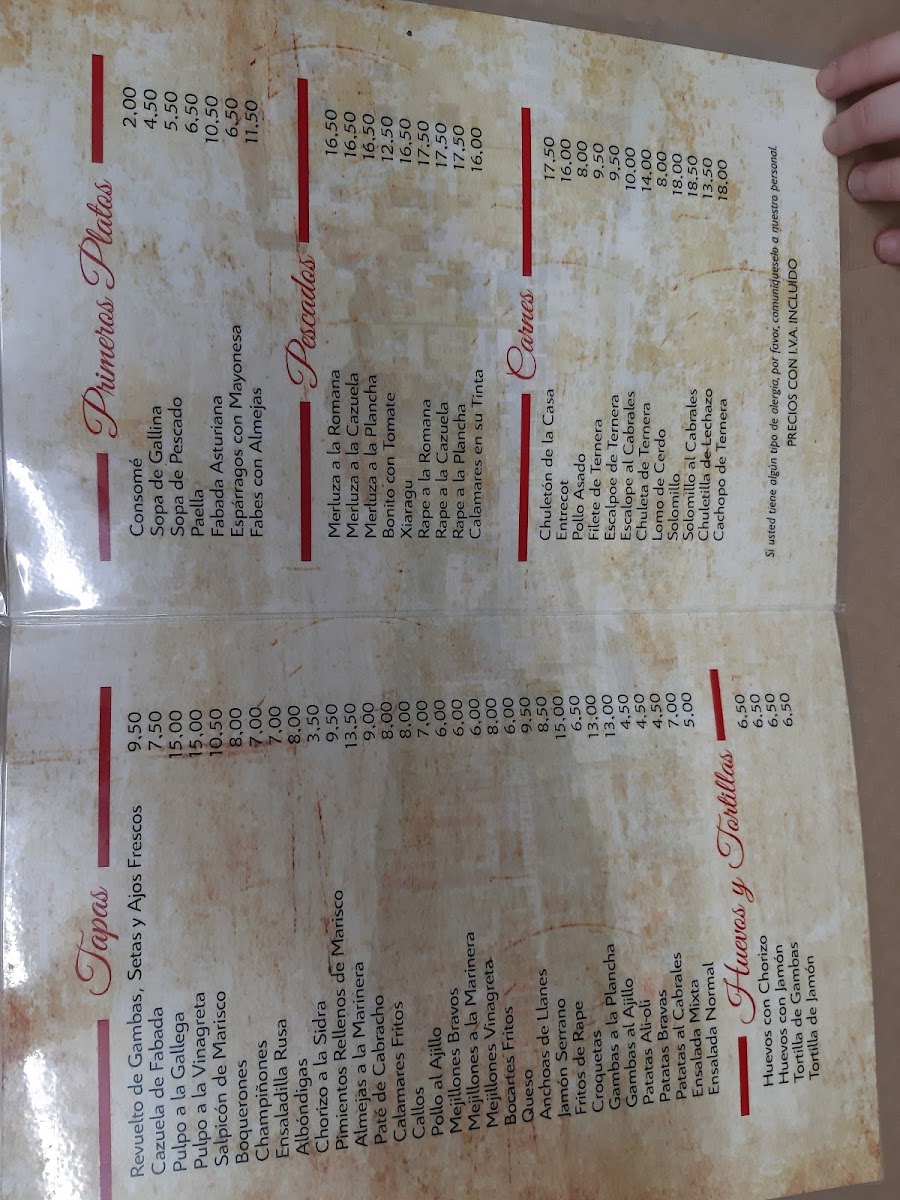 Tapas
Revuelto de Gambas, Setas y Ajos Frescos 9,50
Cazuela de Fabada 7,50
Pulpo a la Gallega 15,00
Pulpo a la Vinagreta 15,00
Salpicón de Marisco 10,50
Boquerones 8,00
Champiñones 7,00
Ensaladilla Rusa 7,00
Albóndigas 8,00
Chorizo a la Sidra 3,50
Pimientos Rellenos de Marisco 9,50
Almejas a la Marinera 13,50
Paté de Cabracho 9,00
Calamares Fritos 8,00
Callos 8,00
Pollo al Ajillo 7,00
Mejillones Bravos 6,00
Mejillones a la Marinera 6,00
Mejilllones Vinagreta 6,00
Bocartes Fritos 8,00
Queso 6,00
Anchoas de Llanes 9,50
Jamón Serrano 8,50
Fritos de Rape 15,00
Croquetas 6,50
Gambas a la Plancha 13,00
Gambas al Ajillo 13,00
Patatas Ali-oli 4,50
Patatas Bravas 4,50
Patatas al Cabrales 4,50
Ensalada Mixta 7,00
Ensalada Normal 5,00
Huevos y Tortillas
Huevos con Chorizo 6,50
Huevos con Jamón 6,50
Tortilla de Gambas 6,50
Tortilla de Jamón 6,50
Primeros Platos
Consomé 2,00
Sopa de Gallina 4,50
Sopa de Pescado 5,50
Paella 6,50
Fabada Asturiana 10,50
Espárragos con Mayonesa 6,50
Fabes con Almejas 11,50
Pescados
Merluza a la Romana 16,50
Merluza a la Cazuela 16,50
Merluza a la Plancha 16,50
Bonito con Tomate 12,50
Xiaragu 16,50
Rape a la Romana 17,50
Rape a la Cazuela 17,50
Rape a la Plancha 17,50
Calamares en su Tinta 16,00
Carnes
Chuletón de la Casa 17,50
Entrecot 16,00
Pollo Asado 8,00
Filete de Ternera 9,50
Escalpoe de Ternera 9,50
Escalope al Cabrales 10,00
Chuleta de Ternera 14,00
Lomo de Cerdo 8,00
Solomillo 18,00
Solomillo al Cabrales 18,50
Chuletilla de Lechazo 13,50
Cachopo de Ternera 18,00
Si usted tiene algún tipo de alergia, por favor, comuníqueselo a nuestro personal.
PRECIOS CON I.V.A. INCLUÍDO